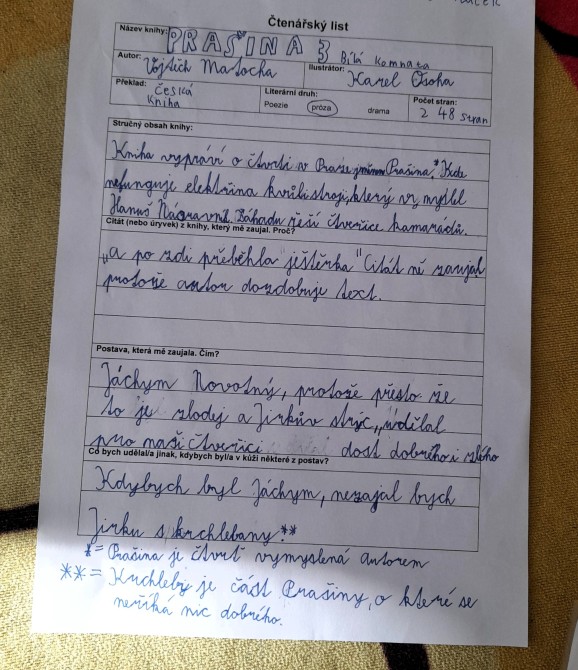 Čtenářský list
Název knihy: PRAŠINA 3 Bílá komnata
Autor: Vojtěch Matocha Ilustrátor: Karel Osoha
Překlad: Česká Kniha Literární druh: Poezie próza drama Počet stran: 248 stran
Stručný obsah knihy:
Kniha vypráví o čtvrti v Praze jménem Prašina,* Kde
nefunguje elektřina kvůli stroji, který vymyslel
Hanuš Nápravník. Záhadu řeší čtveřice kamarádů.
Citát (nebo úryvek) z knihy, který mě zaujal. Proč?
„a po zdi přeběhla ještěrka" Citát mě zaujal
protože autor dozdobuje text.
Postava, která mě zaujala. Čím?
Jáchym Novotný, protože přesto že
to je zloděj a Jirkův strýc, udělal
pro naši čtveřici dost dobrého i zlého
Co bych udělal/a jinak, kdybych byl/a v kůži některé z postav?
Kdybych byl Jáchym, nezajal bych
Jirku s krchlebany.**
*= Prašina je čtvrť vymyslená autorem
**= Krchleby je část Prašiny, o které se
neříká nic dobrého.